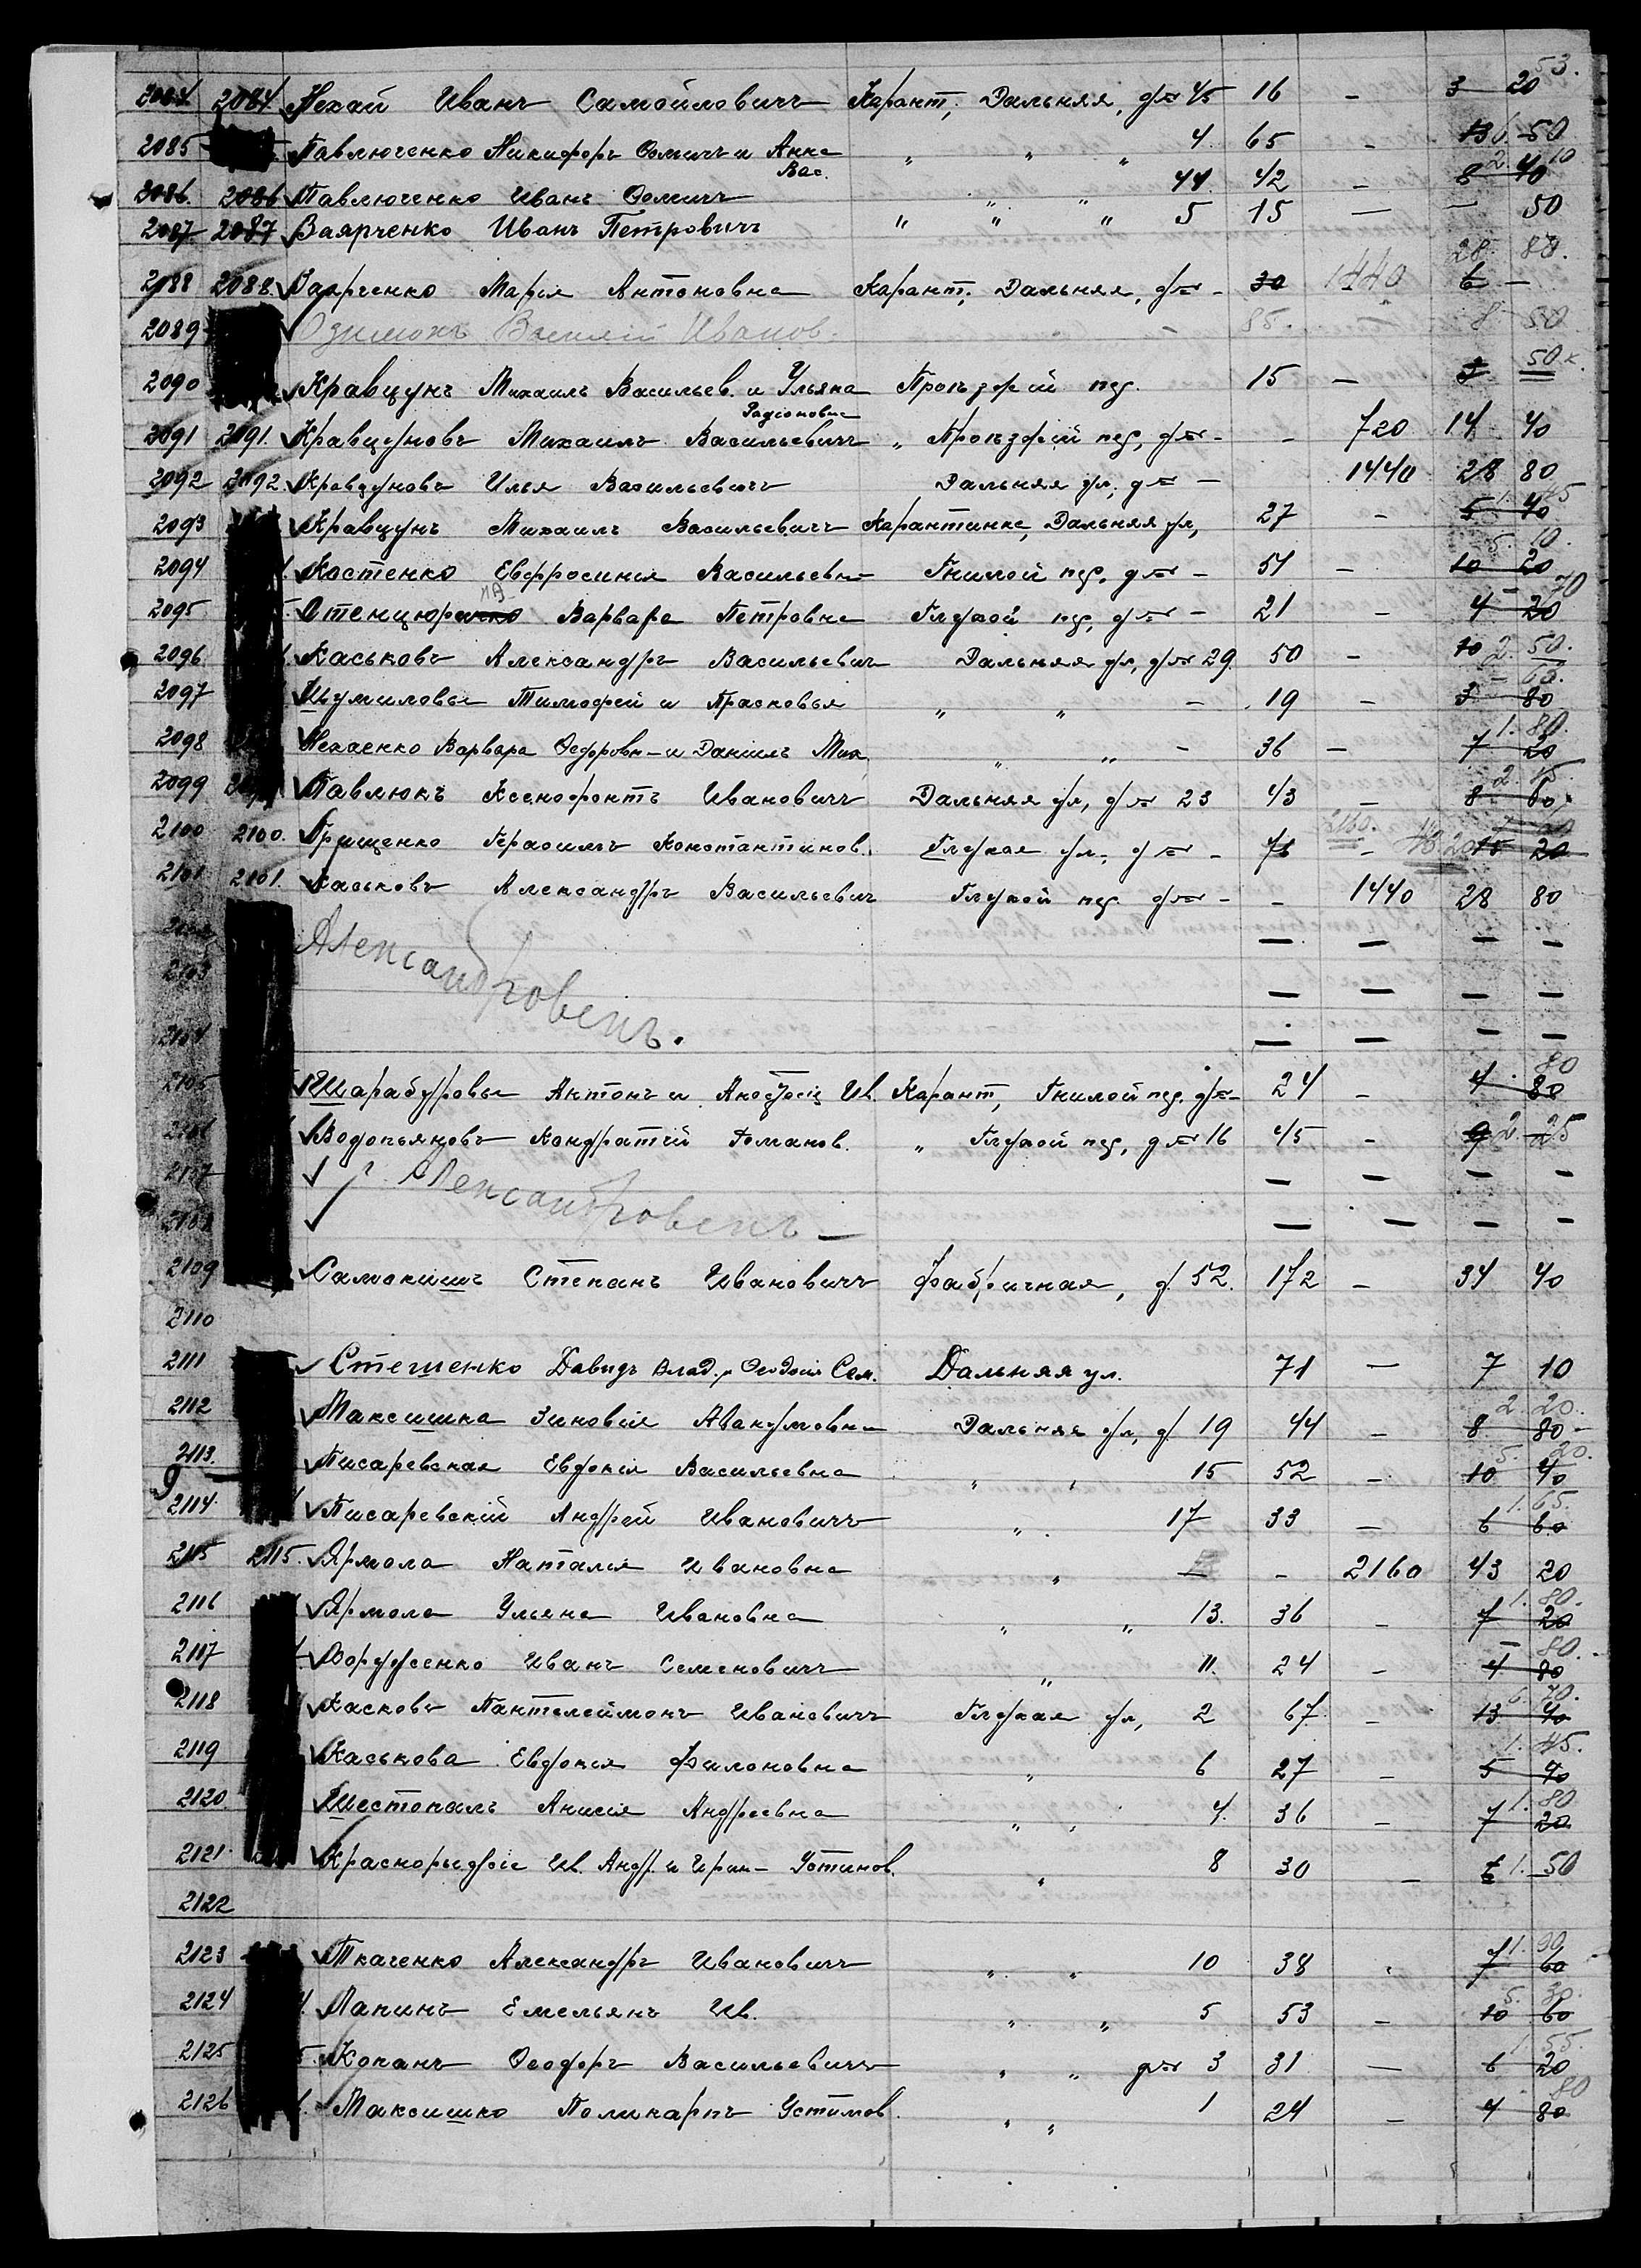 53.
2084 2084 Нехай Иванъ Самойловичъ Карант, Дальняя, д№ 45 16 - 3 20
2085 Павлюченко Никифоръ Ѳомичъ и Анна Вас. " " " 4 65 - 13 6. 50
2086 2086 Павлюченко Иванъ Ѳомичъ " " 44 42 - 8 40 2. 10
2087 2087 Ваярченко Иванъ Петровичъ " " " 5 15 — — 50
2088 2088. Ваярченко Марія Антоновна Карант, Дальняя, д№ - 30 1440 6 - 28. 80.
2089 Василій Иванов. - 85. - 8 50
2090 Кравцунъ Михаилъ Васильев. и Ульяна Родіоновна Проѣздной пер. 15 — 3 50к
2091 2091. Кравцуновъ Михаилъ Васильевичъ " Проѣздной пер, д№ - - 720 14 40
2092 2092 Кравцуновъ Илья Васильевичъ Дальняя ул, д№ - 1440 28 80
2093 Кравцунъ Михаилъ Васильевичъ Карантинка, Дальняя ул, 27 - 5 40
2094 Костенко Евфросинія Васильевна Гнилой пер, д№ - 51 - 10 20 5. 10.
2095 Варвара Петровна Глухой пер, д№ - 21 - 4 20 - 70
2096 Каськовъ Александръ Васильевич Дальняя ул, д№ 29. 50 - 10 2. 50.
2097 Шумиловы Тимофей и Прасковья " " - 19 - 3 80
2098 Нехаенко Варвара Ѳедоровн- и Даніилъ Мих. " " - 36 — 7 20 1. 80.
2099 Павлюкъ Ксенофонтъ Ивановичъ Дальняя ул, д№ 23 43 - 8 60 2. 15.
2100 2100. Грищенко Герасимъ Константинов. Глухая ул, д№ - 76 2160. - 43.20 15 20
2101 2101. Каськовъ Александръ Васильевич Глухой пер. д№ - - 1440 28 80
2102 — — — —
2103 Александровскъ. — — — —
2104 — — — —
2105 Шарабуровы Антонъ и Ив. Карант, Гнилой пер. д№ - 24 - 4 80 80
2106 Водопьяновъ Кондратій Романов. " Глухой пер, д№ 16 45 - 9 2. 25
2107 г. Александровскъ — — — —
2108 — — — —
2109 Самокишъ Степанъ Ивановичъ Фабричная, д. 52. 172 - 34 40
2110
2111 Стешенко Давидъ Влад. и Ѳеодосія Сем. Дальняя ул. 71 — 7 10
2112 Максишка Зиновія Авакумовна Дальняя ул, д. 19 44 - 8 80 2. 20.
2113. Писаревская Евдокія Васильевна " " 15 52 - 10 40 5. 20.
9
2114 Писаревскій Андрей Ивановичъ " 17 33 — 6 60 1. 65.
2115 2115. Ярмола Наталія Ивановна " - 2160 43 20
2116 Ярмола Ульяна Ивановна " " 13. 36 - 7 20 1. 80.
2117 Ворущенко Иванъ Семеновичъ " 11. 24 - 4 80 - 80.
2118 Касковъ Пантелеймонъ Ивановичъ Глухая ул, 2 67 - 13 40 6. 70.
2119 Каськова Евдокія Филоновна " 6 27 - 5 40 1. 45.
2120. Шестопалъ Анисія Андреевна " " 4. 36 - 7 20 1. 80
2121 Краснорыдкіе Ив. Андр. и Ирин- Устинов. " 8 30 - 6 1. 50
2122
2123 Ткаченко Александръ Ивановичъ " " 10 38 7 60 1. 90
2124 Лапинъ Емельянъ Ив. " " 5 53 - 10 60 5. 30.
2125 Копанъ Ѳеодоръ Васильевичъ " " д№ 3 31 — 6 20 1 55.
2126 Максишко Поликарпъ Устимов. " " 1 24 - 4 80 80